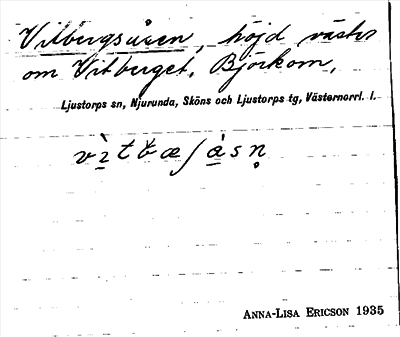 Vitbergsåsen, höjd väster
om Vitberget, Björkom,
Ljustorps sn, Njurunda, Sköns och Ljustorps tg, Västernorrl. l.
vìtbæʃàsn̥
ANNA-LISA ERICSON 1935